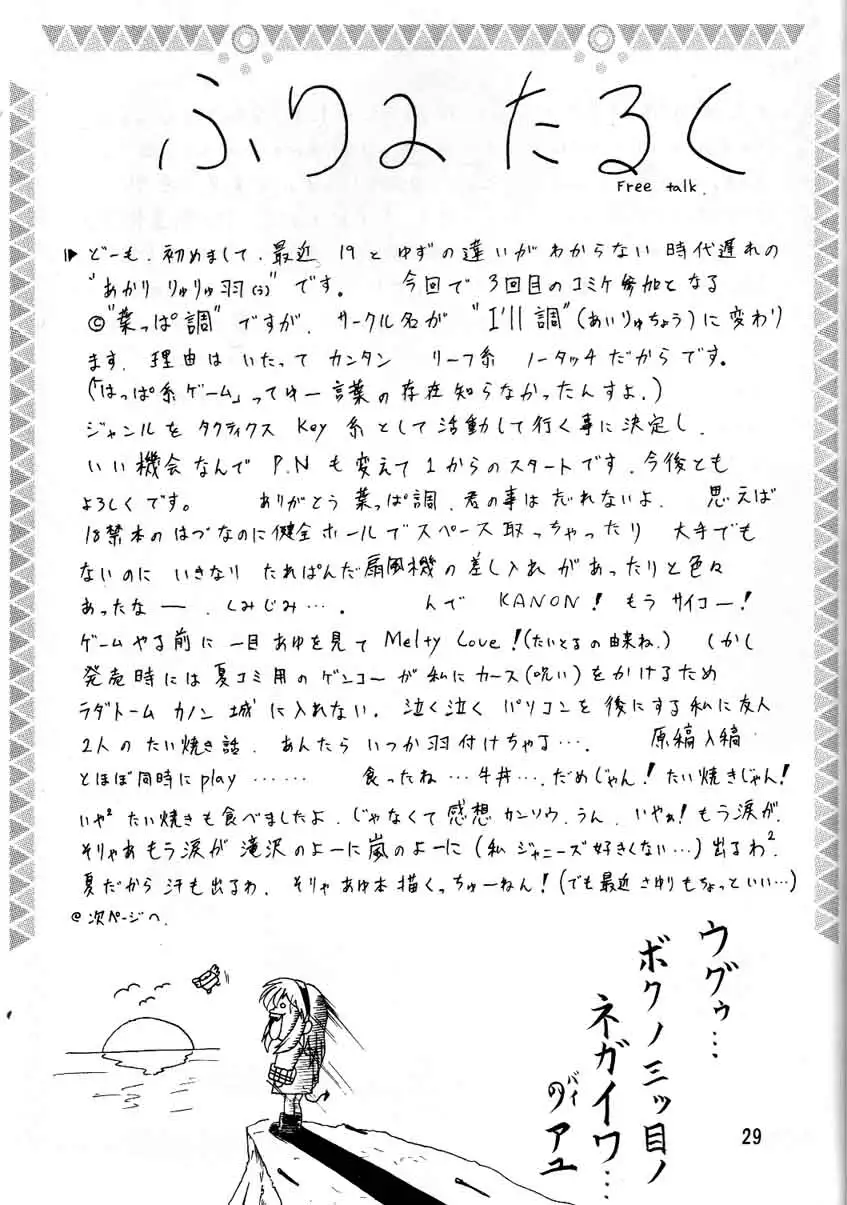 ふりーたるく
Free talk.
どーも、初めまして、最近 19とゆずの違いがわからない時代遅れの
"あかり りゅりゅ羽(う)"です。 今回で3回目のコミケ参加となる
©"葉っぱ調"ですが、サークル名が"I'll調"(あいりゅちょう)に変わり
ます、理由はいたってカンタン リーフ系 ノータッチだからです。
(「はっぱ系ゲーム」ってゆー言葉の存在知らなかったんすよ、)
ジャンルをタクティクス Key 系として活動して行く事に決定し、
いい機会なんで P.Nも変えて1からのスタートです、今後とも
よろしくです。 ありがとう葉っぱ調、君の事は忘れないよ、 思えば
18禁本のはづなのに健全ホールでスペース取っちゃったり 大手でも
ないのに いきなり たれぱんだ扇風機の差し入れがあったりと色々
あったなー、しみじみ…。 んで KANON! もうサイコー!
ゲームやる前に一目あゆを見てMelty Love!(たいとるの由来ね、) しかし
発売時には夏コミ用のゲンコーが私にカース(呪い)をかけるため
ラダトーム カノン 城に入れない、泣く泣く パソコンを後にする私に友人
2人のたい焼き話、あんたらいつか羽付けちゃる…、 原稿入稿
とほぼ同時にplay …… 食ったね…牛丼…、だめじゃん!たい焼きじゃん!
いや² たい焼きも食べましたよ、じゃなくて感想カンソウ、うん、いやぁ!もう涙が、
そりゃあもう涙が滝沢のよーに嵐のよーに(私ジャニーズ好きくない…)出るわ²、
夏だから汗も出るわ、そりゃあゆ本描くっちゅーねん!(でも最近さゆりもちょっといい…)
@次ページへ、
ウグゥ…
ボクノ三ッ目ノ
ネガイワ…
のバイ アユ
29